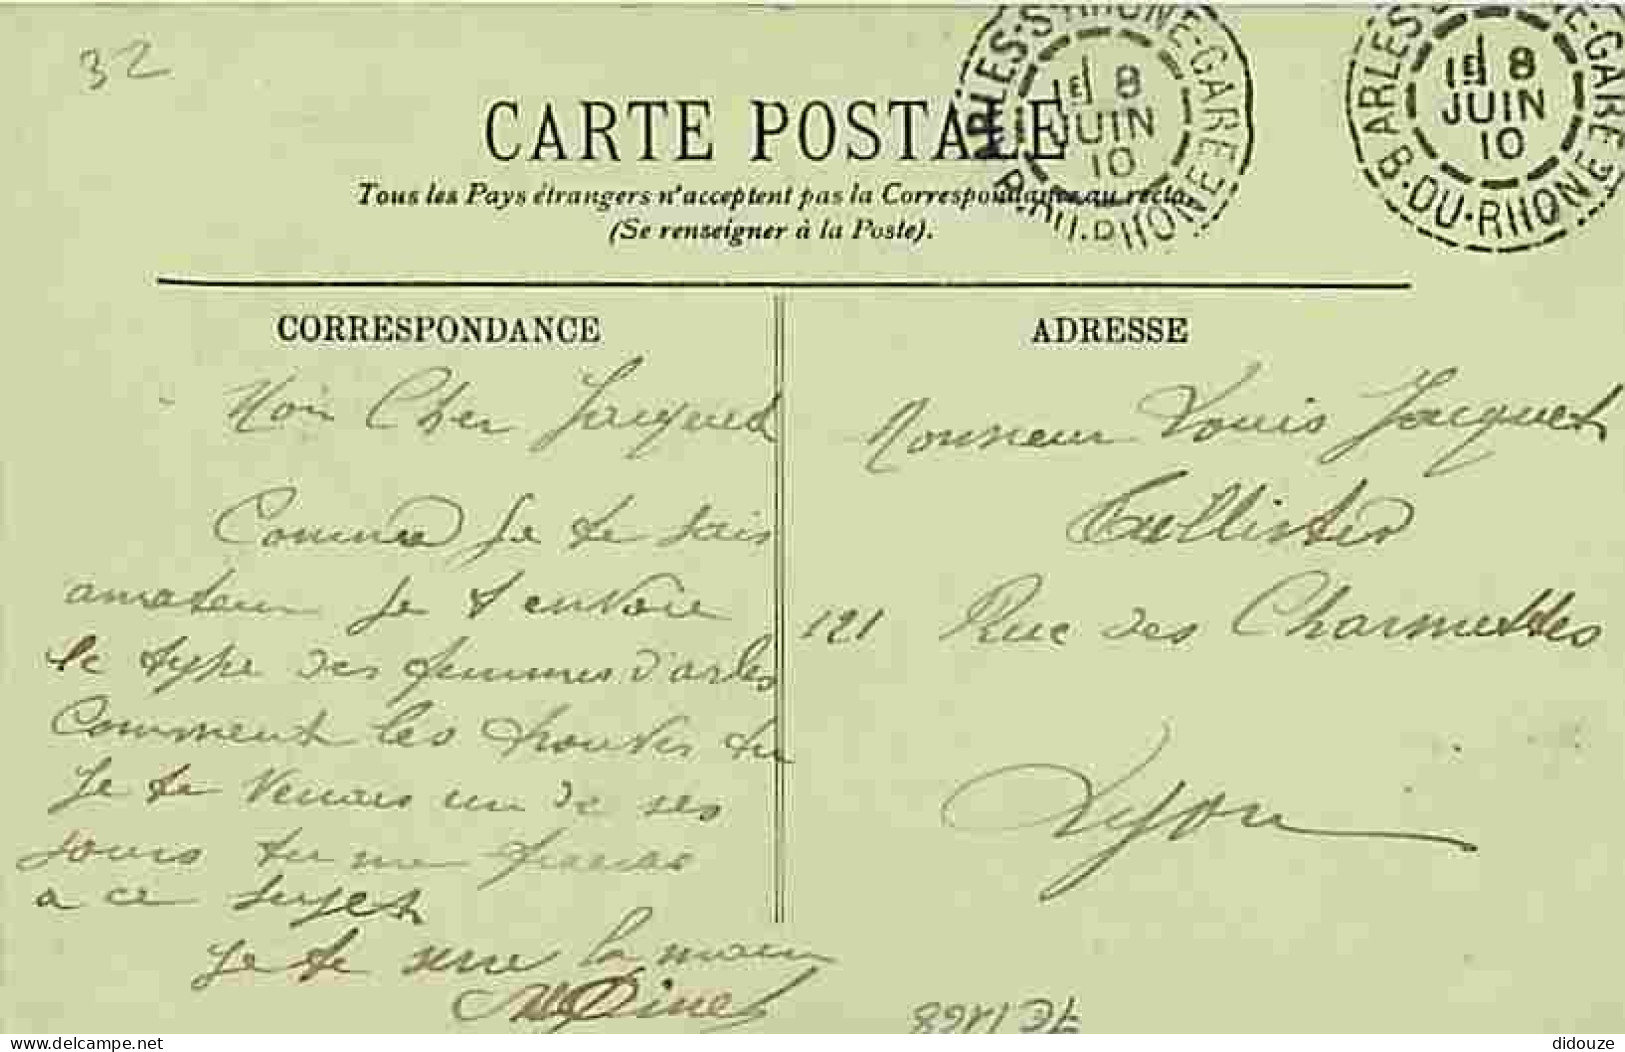 32
CARTE POSTALE
Tous les Pays étrangers n'acceptent pas la Correspondance au recto.
(Se renseigner à la Poste).
ARLES-S-RHONE-GARE
B.-DU-RHONE
1E 8
JUIN
10
ARLES-S-RHONE-GARE
B.-DU-RHONE
1E 8
JUIN
10
CORRESPONDANCE
Mon Cher Jacquet
Comme Je te sais
amateur Je t envoie
le type des femmes d'arles
Comment les trouves tu
Je te Verais un de ses
Jours tu me
a ce sujet
Je te serre la main
ADRESSE
Monsieur Louis Jacquet
Tullister
121 Rue des Charmettes
Lyon
delcampe.net
didouze